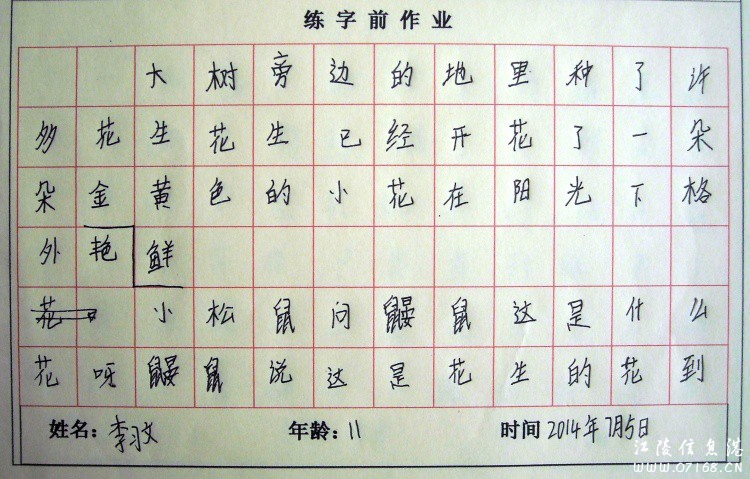 练字前作业
大树旁边的地里种了许
多花生花生已经开花了一朵
朵金黄色的小花在阳光下格
外艳鲜
小松鼠问鼹鼠这是什么
花呀鼹鼠说这是花生的花到
姓名：李习文 年龄：11 时间 2014年7月5日
江陵信息港
WWW.07168.CN